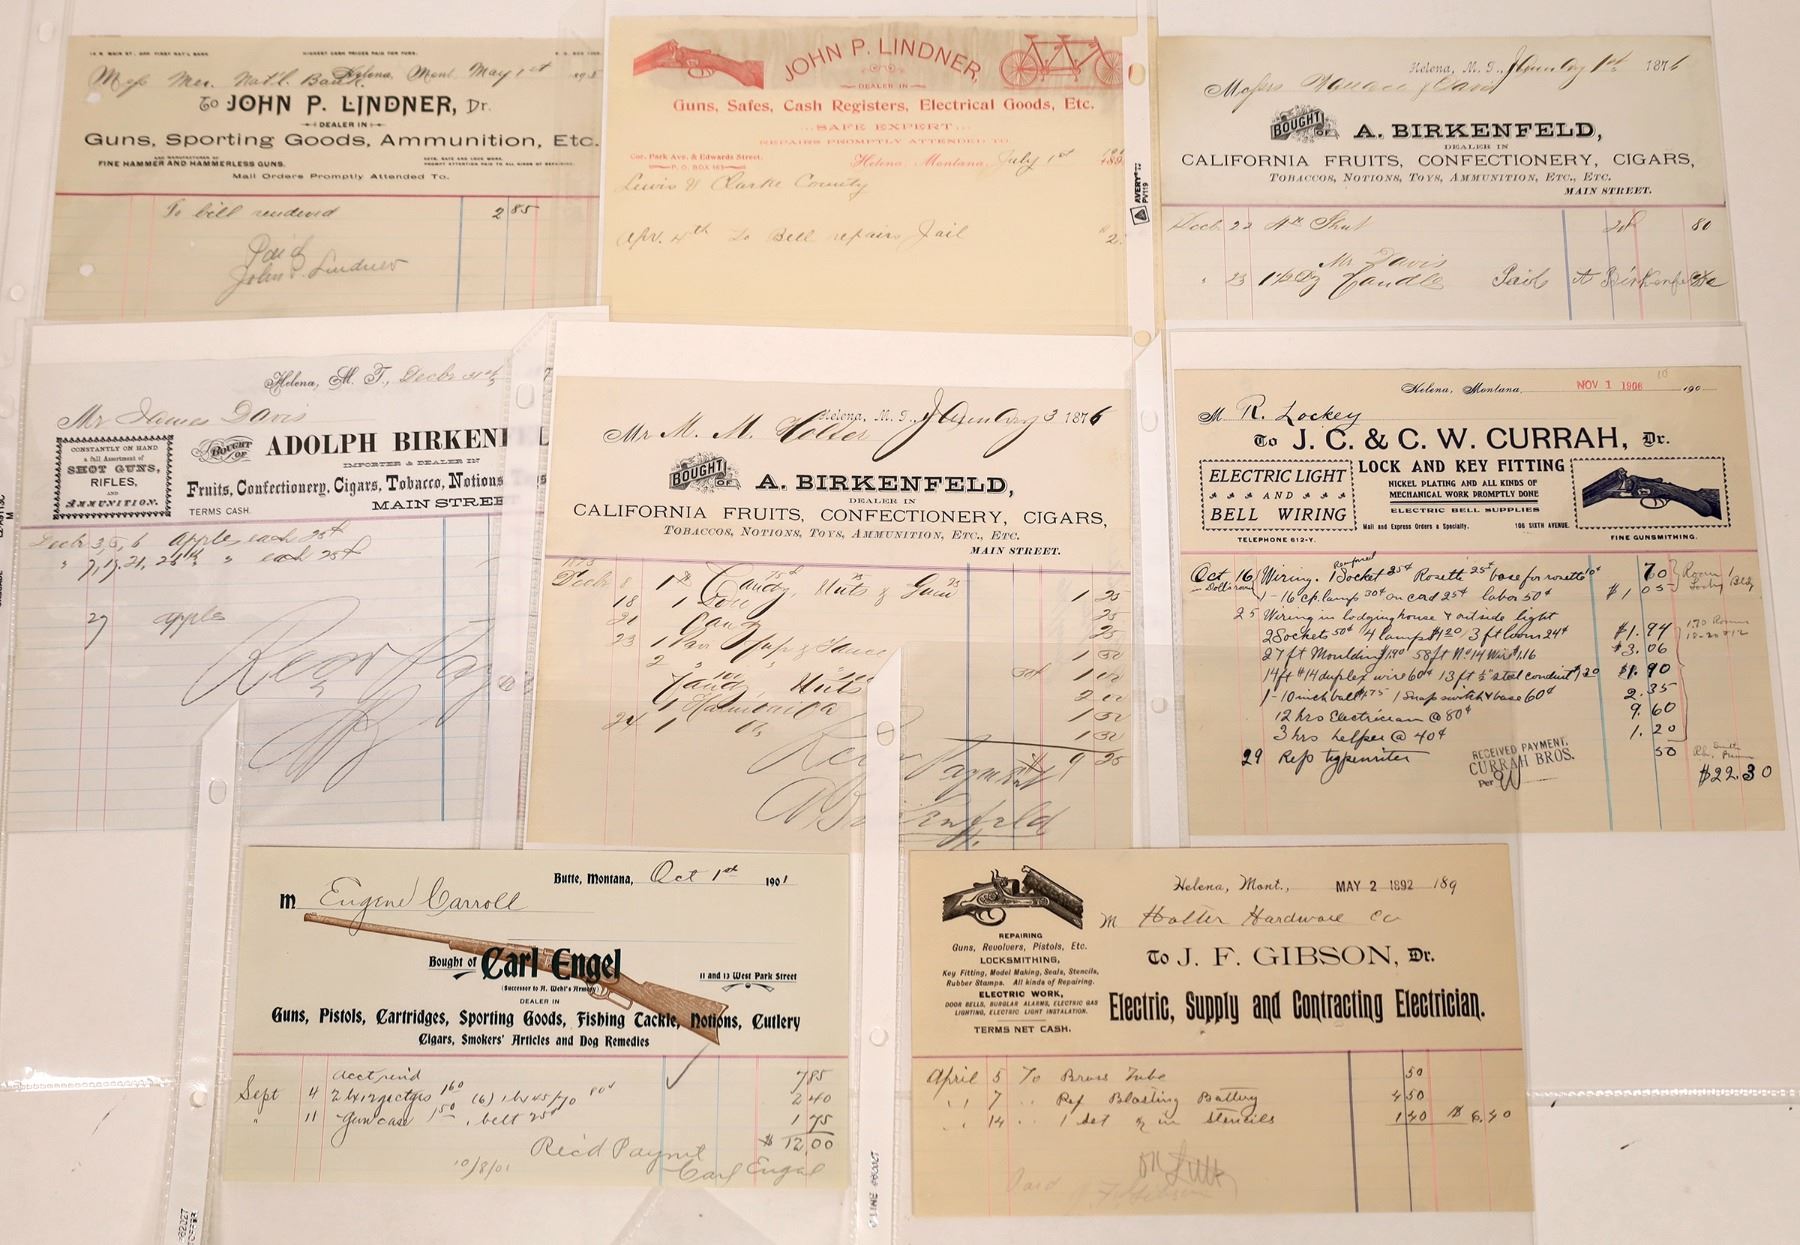 14 N. MAIN ST., OPP. FIRST NAT'L BANK
HIGHEST CASH PRICES PAID FOR FURS.
Helena, Mont. May 1st
Mer. Nat'l. Bank
To JOHN P. LINDNER, Dr.
DEALER IN
Guns, Sporting Goods, Ammunition, Etc.
AND MANUFACTURER OF
FINE HAMMER AND HAMMERLESS GUNS.
PROMPT ATTENTION PAID TO ALL KINDS OF REPAIRING.
Mail Orders Promptly Attended To.
To bill rendered 2 85
Paid
John P. Lindner
JOHN P. LINDNER,
DEALER IN
Guns, Safes, Cash Registers, Electrical Goods, Etc.
...SAFE EXPERT...
REPAIRS PROMPTLY ATTENDED TO
Cor. Park Ave. & Edwards Street.
P. O. BOX 163
Helena, Montana, July 1st 189
Lewis & Clarke County
Apr. 4th To Bell repairs Jail 2.
AVERY
PV119
Helena, M. T., January 1st 1876
Messrs Wallace & Davis
BOUGHT OF A. BIRKENFELD,
DEALER IN
CALIFORNIA FRUITS, CONFECTIONERY, CIGARS,
TOBACCOS, NOTIONS, TOYS, AMMUNITION, ETC., ETC.
MAIN STREET.
Decb. 22 4 lb Shot 20 80
Mr Davis
" 23 Candles Paid A Birkenfeld
Helena, M. T., Decbr 31st
Mr James Davis
CONSTANTLY ON HAND
a full Assortment of
SHOT GUNS,
RIFLES,
AND
AMMUNITION.
BOUGHT OF ADOLPH BIRKEN
IMPORTER & DEALER IN
Fruits, Confectionery, Cigars, Tobacco, Notions
TERMS CASH.
MAIN STREE
Decbr 3, 5, 6 apples each 25¢
" each 25¢
27 apples
Helena, M. T., January 3 1876
Mr M. M. Holter
BOUGHT OF A. BIRKENFELD,
DEALER IN
CALIFORNIA FRUITS, CONFECTIONERY, CIGARS,
TOBACCOS, NOTIONS, TOYS, AMMUNITION, ETC., ETC.
MAIN STREET.
1875
Decbr 8 1 lb Candy, Nuts & Gum 1 25
18 1 25
21 Candy 25
23 1 1 50
2 50¢ 1 00
Candy, Nuts 2 00
1 1 50
24 1 1 50
$ 9 25
Recd Payment
A Birkenfeld
Helena, Montana, NOV 1 1906 190
M R. Lockey
To J. C. & C. W. CURRAH, Dr.
ELECTRIC LIGHT
AND
BELL WIRING
TELEPHONE 612-Y.
LOCK AND KEY FITTING
NICKEL PLATING AND ALL KINDS OF
MECHANICAL WORK PROMPTLY DONE
ELECTRIC BELL SUPPLIES
Mail and Express Orders a Specialty. 106 SIXTH AVENUE.
FINE GUNSMITHING.
Oct 16 Wiring. 1 Socket 25¢ Rosette 25¢ base for rosette 10¢ 70
1-16 cp. lamp 30¢ on cord 25¢ labor 50¢ $1 05
25 Wiring in lodginghouse & outside light
2 Sockets 50¢ 4 lamps $1.20 / 3 ft loom 24¢ $1.94
27 ft Moulding $1.90 58 ft No 14 Wire $1.16 $3.06
14 ft #14 duplex wire 60¢ 13 ft ½" steel conduit $1.30 $1.90
1-10 inch ball $1.75 1 Snap switch & base 60¢ 2.35
12 hrs Electrician @ 80¢ 9.60
3 hrs helper @ 40¢ 1.20
29 Rep typewriter 50
RECEIVED PAYMENT,
CURRAH BROS.
Per
$22.30
Butte, Montana, Oct 1st 1901
M Eugene Carroll
Bought of Carl Engel
(Successor to A. Wehl's Armory)
11 and 13 West Park Street
DEALER IN
Guns, Pistols, Cartridges, Sporting Goods, Fishing Tackle, Notions, Cutlery
Cigars, Smokers' Articles and Dog Remedies
Acct rend 7 85
Sept 4 2 bx 12 ga ctgs 160 (6) 1 bx 45/70 80¢ 2 40
" 11 gun case 1.50, belt 25¢ 1 75
$ 12.00
Rec'd Paymt
10/8/01 Carl Engel
REPAIRING
Guns, Revolvers, Pistols, Etc.
LOCKSMITHING,
Key Fitting, Model Making, Seals, Stencils,
Rubber Stamps. All kinds of Repairing.
ELECTRIC WORK,
DOOR BELLS, BURGLAR ALARMS, ELECTRIC GAS
LIGHTING, ELECTRIC LIGHT INSTALATION.
TERMS NET CASH.
Helena, Mont., MAY 2 1892 189
M Holter Hardware Co
To J. F. GIBSON, Dr.
Electric, Supply and Contracting Electrician.
April 5 To Brass Tube 50
" 7 " Rep Blasting Battery 4 50
" 14 " 1 set in Stencils 1 40 $ 6.40
Paid
J. F. Gibson